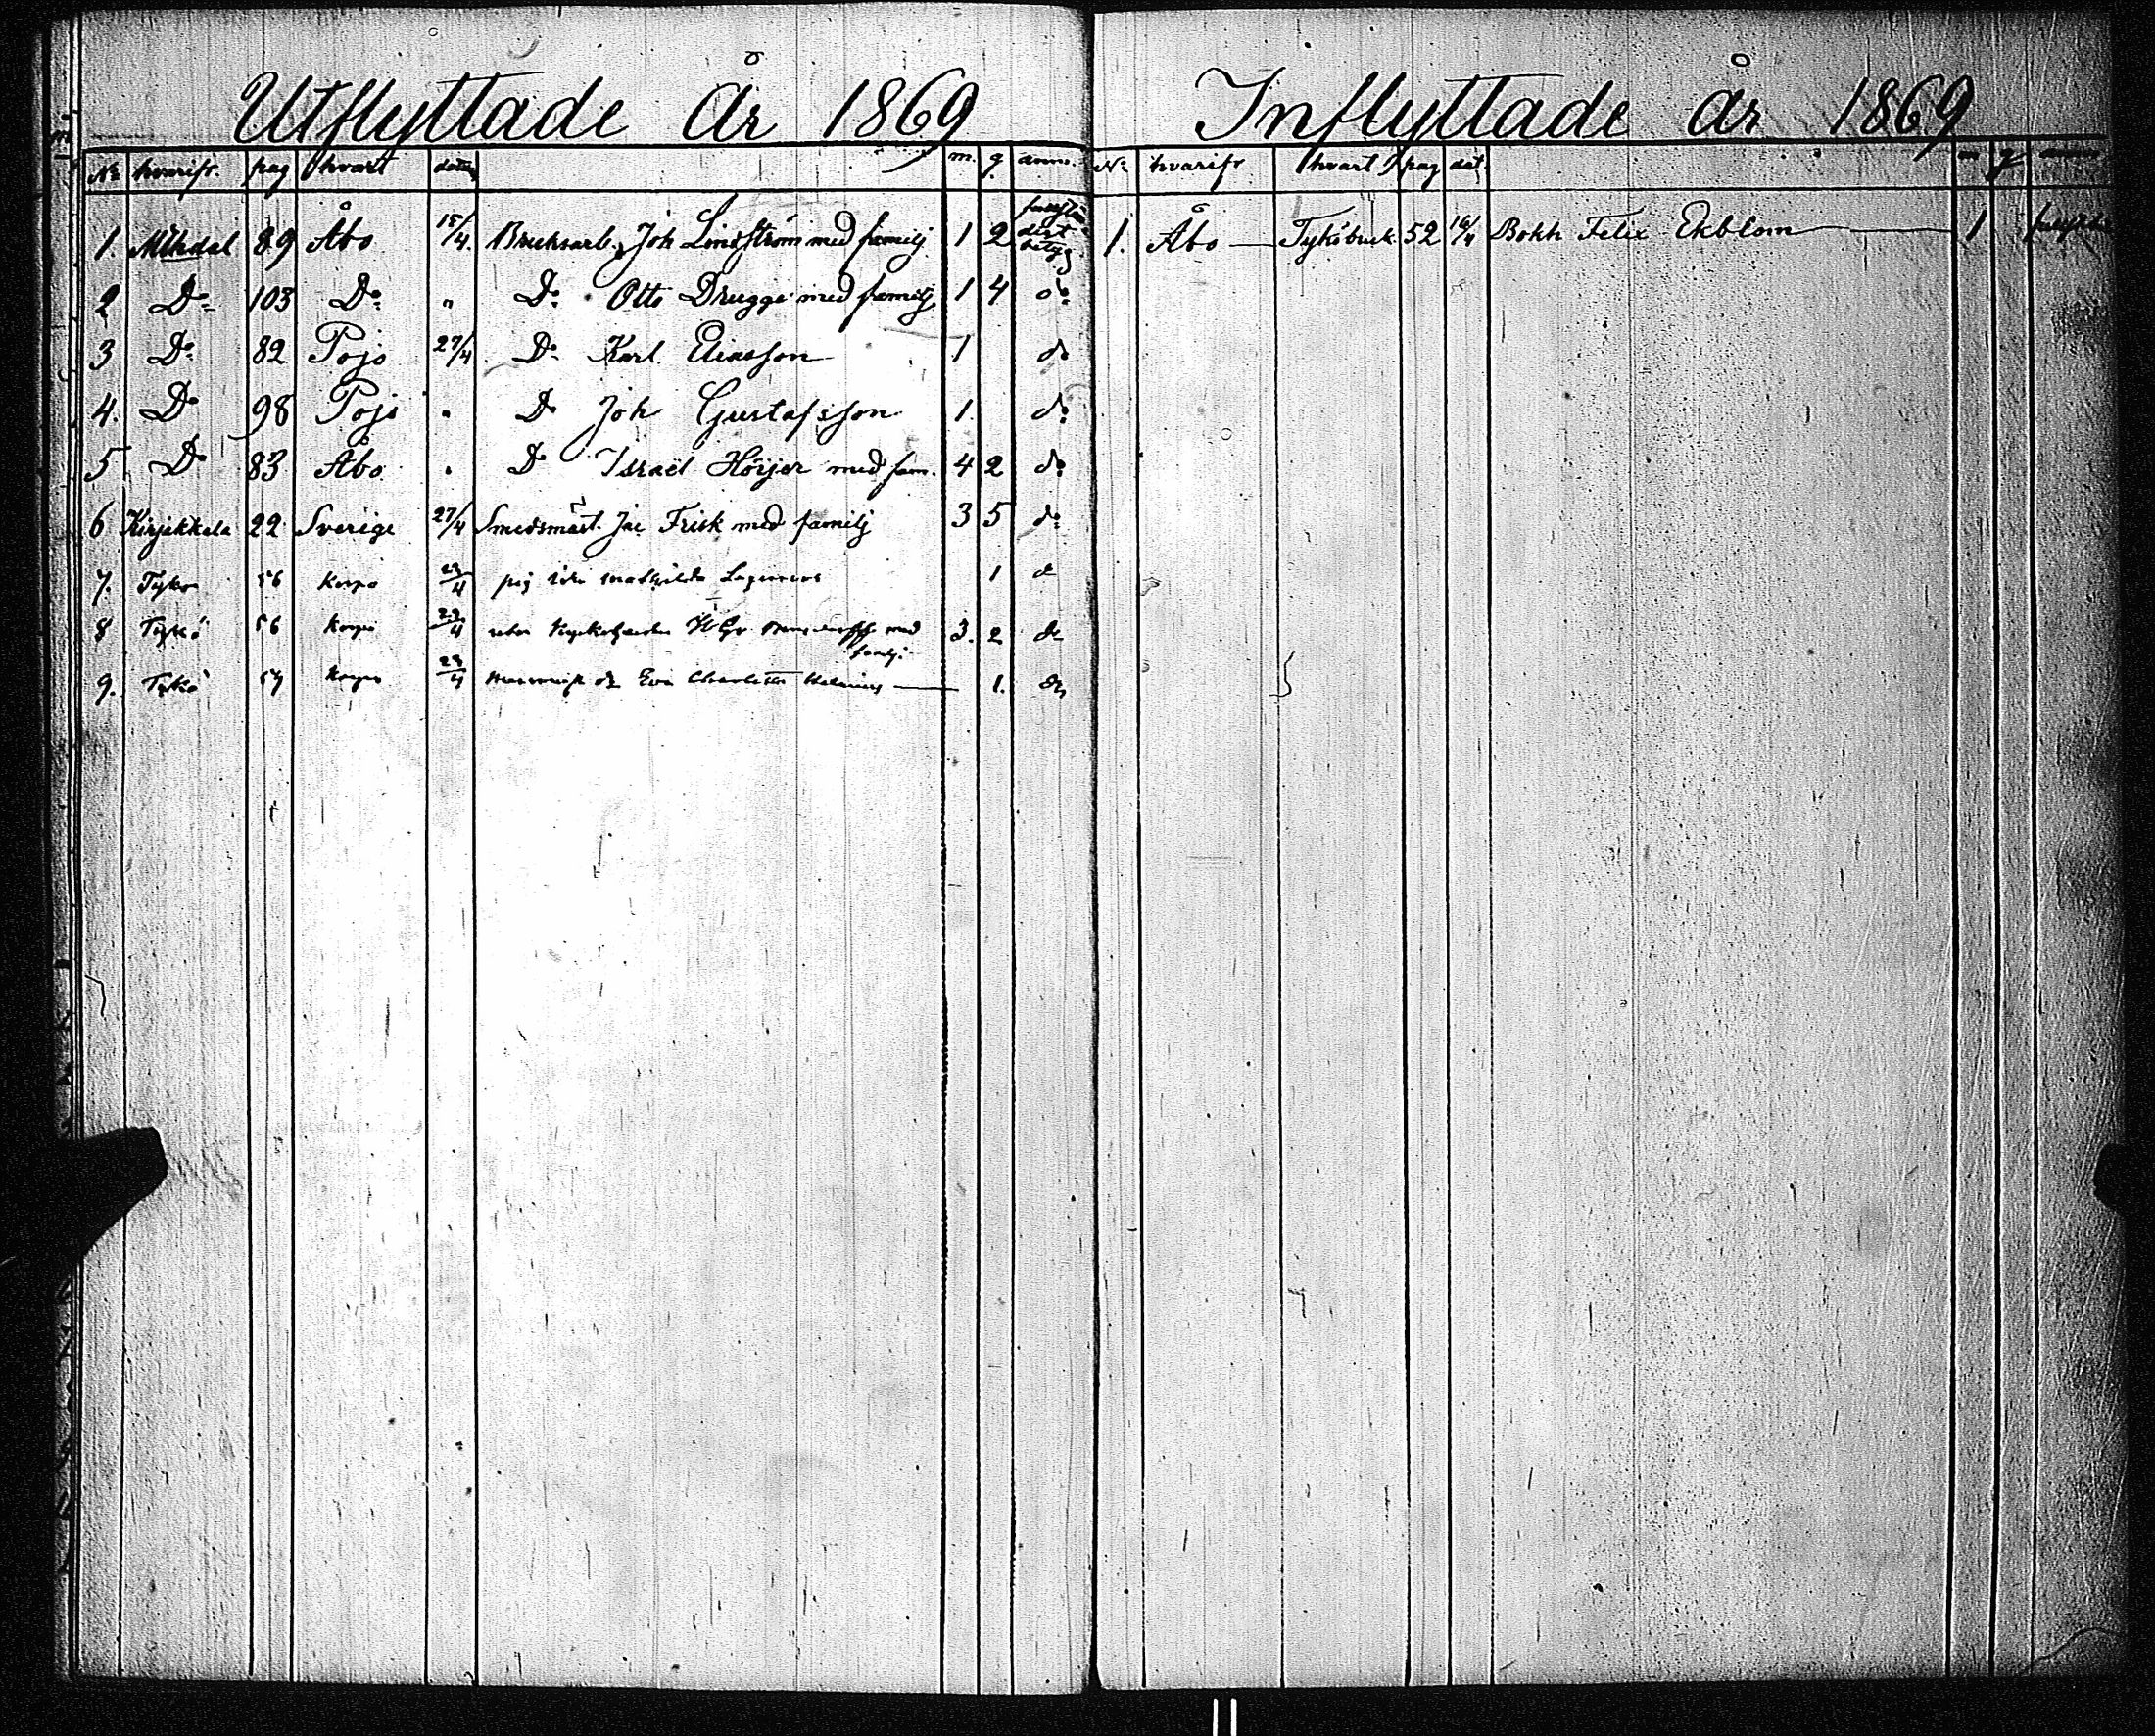 Utflyttade År 1869
No hvarifr. pag hvart datum m. q. anm.
1. Mthdal 89 Åbo 15/4. Bruksarb. Joh Lindström med familj 1 2 betyg
2 Do 103 Do " Do Otto Drugge med familj 1 4 do
3 Do 82 Pojo 27/4 Do Karl Eliasson 1 do
4. Do 98 Pojo " Do Joh Gustafsson 1. do
5 Do 83 Åbo " Do Israël Höijer med fam. 4 2 do
6 Kirjakkala 22 Sverige 27/4 Smedsmäst. Jac Frisk med familj 3 5 do
7. Tyko 56 Korpo 23/4 pig mathilda 1 d
8 Tykö 56 Korpo 23/4 med 3. 2 do
familj.
9. Tykö 57 Korpo 23/4 Eva Charlotta 1. do
Inflyttade år 1869
No hvarifr hvart pag dat. m q anm
1. Åbo Tyköbruk 52 16/4 Bokh Felix Ekblom 1